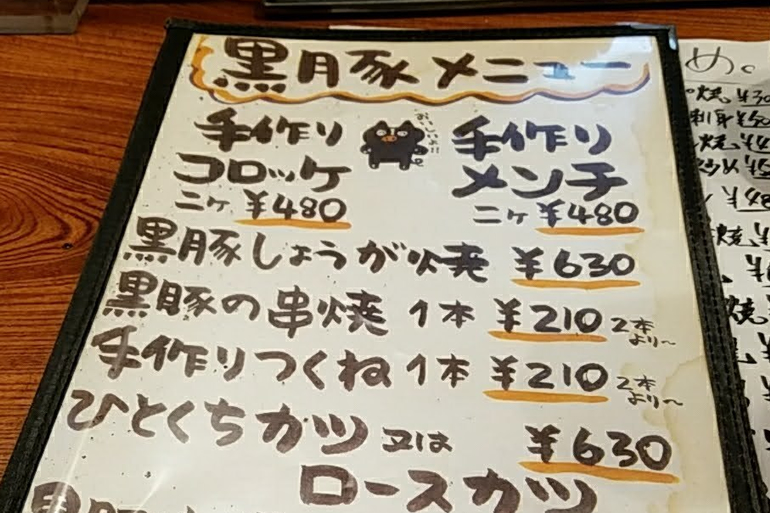 黒月豚 メニュー
手作り
コロッケ
二ヶ ¥480
おいしいよ!!
手作り
メンチ
二ヶ ¥480
黒豚しょうが焼 ¥630
黒豚の串焼 1本 ¥210 2本より〜
手作りつくね 1本 ¥210 2本より〜
ひとくちカツ 又は ¥630
ロースカツ
黒豚
め。